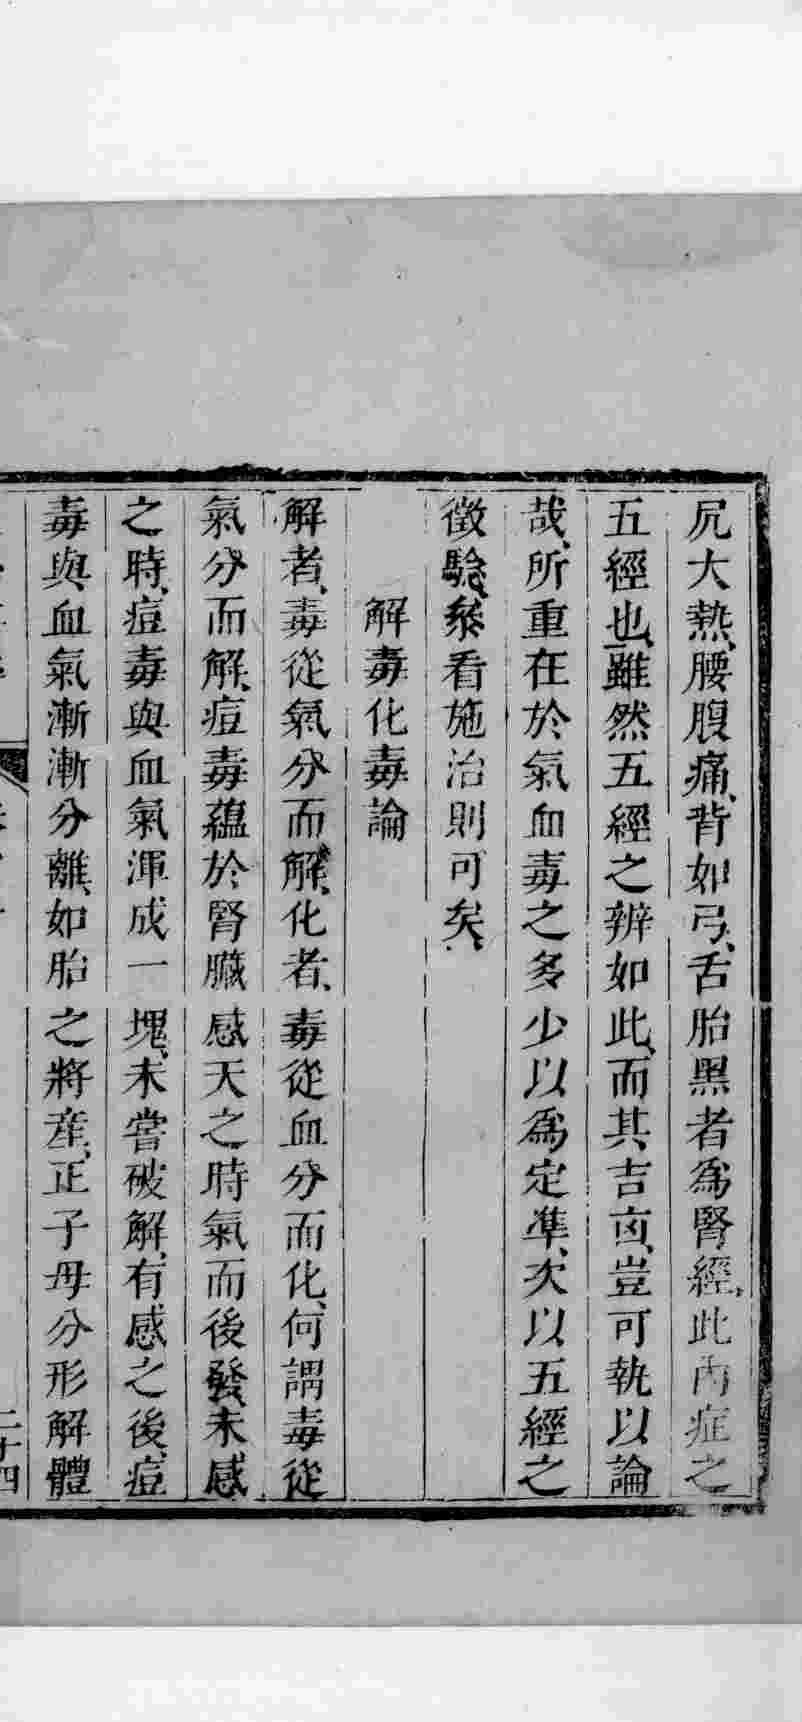 尻大熱、腰腹痛、背如弓、舌胎黑者爲腎經、此內症之
五經也、雖然五經之辨如此、而其吉凶、豈可執以論
哉、所重在於氣血毒之多少以爲定準、次以五經之
徵驗、叅看施治則可矣、
解毒化毒論
解者、毒從氣分而解、化者、毒從血分而化、何謂毒從
氣分而解、痘毒蘊於腎臟感天之時氣、而後發、未感
之時、痘毒與血氣渾成一塊、未嘗破解、有感之後、痘
毒與血氣漸漸分離、如胎之將產、正子母分形解體
二十四